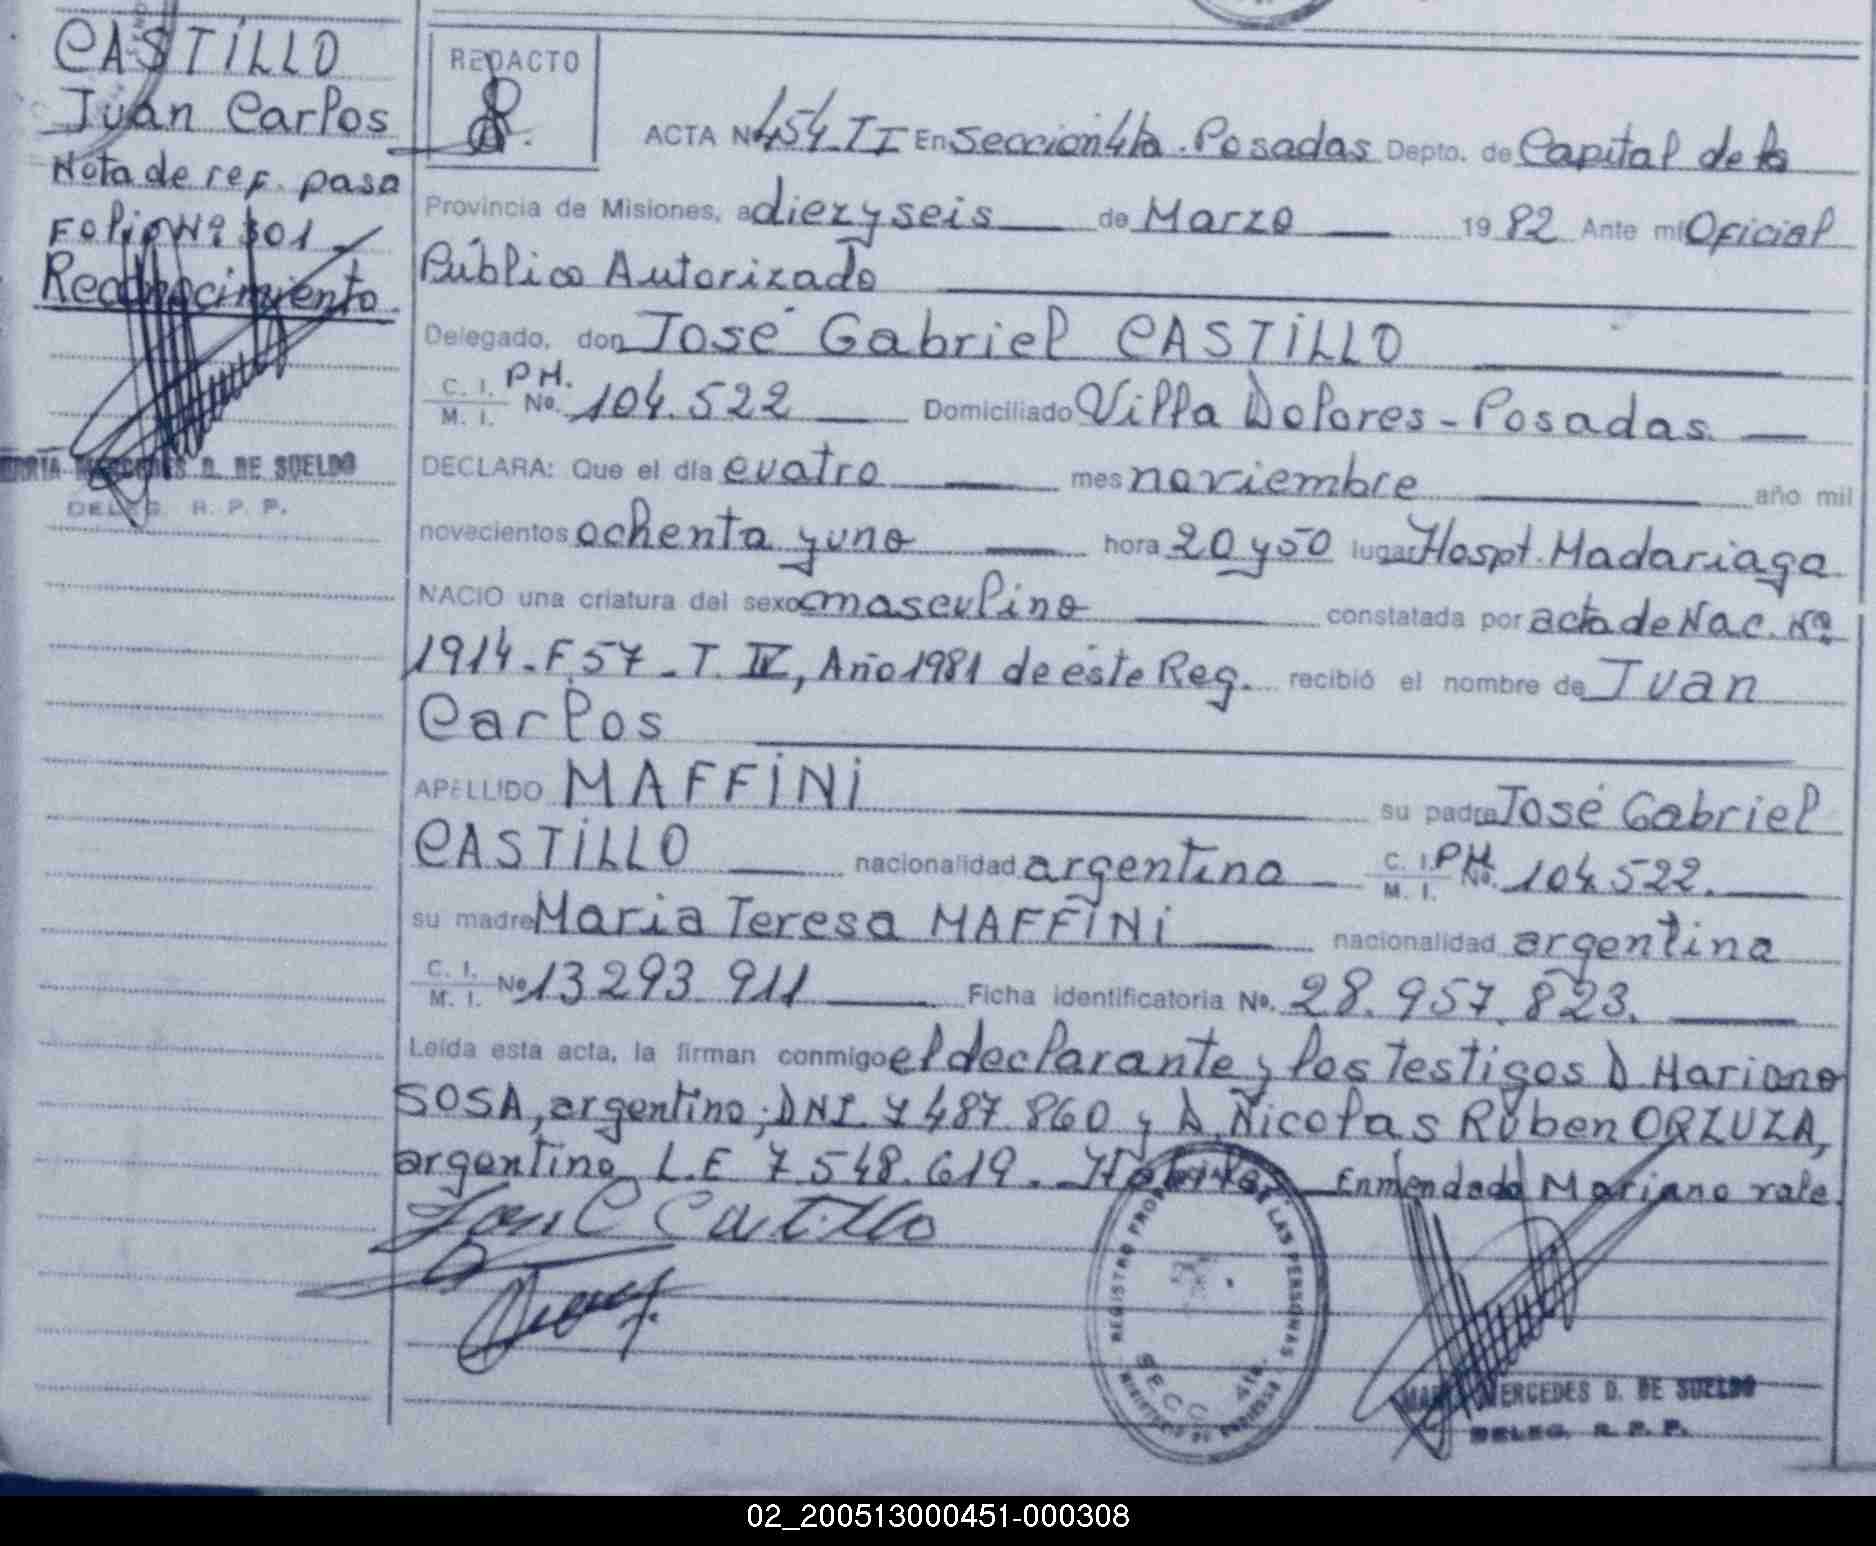 CASTILLO
Juan Carlos
Nota de ref. pasa
Folio Nº 301
Reconocimiento
MARIA MERCEDES D. DE SUELDO
DELEG. R. P. P.
REDACTO
ACTA Nº 454 II En Seccion 4ta. Posadas Depto. de Capital de la
Provincia de Misiones, a diezyseis de Marzo 1982 Ante mi Oficial
Público Autorizado
Delegado, don José Gabriel CASTILLO
C. I. M. I. PH. No. 104.522 Domiciliado Villa Dolores - Posadas.
DECLARA: Que el día cuatro mes noviembre año mil
novecientos ochenta y uno hora 20 y 50 lugar Hospt. Madariaga
NACIO una criatura del sexo masculino constatada por acta de Nac. Nº
1914 - F. 57 - T. IV, Año 1981 de éste Reg. recibió el nombre de Juan
Carlos
APELLIDO MAFFINI su padre José Gabriel
CASTILLO nacionalidad argentina C. I. M. I. PH. No. 104.522.
su madre Maria Teresa MAFFINI nacionalidad argentina
C. I. M. I. Nº 13293.911 Ficha identificatoria No. 28.957.823.
Leída esta acta, la firman conmigo el declarante y los testigos D Mariano
SOSA, argentino, DNI. 7 487.860 y D. Nicolas Rúben ORZUZA,
argentino L.E 7.548.619. Enmendado Mariano vale.
REGISTRO PROV. DE LAS PERSONAS
SECC. 4ta.
MARIA MERCEDES D. DE SUELDO
DELEG. R. P. P.
02_200513000451-000308